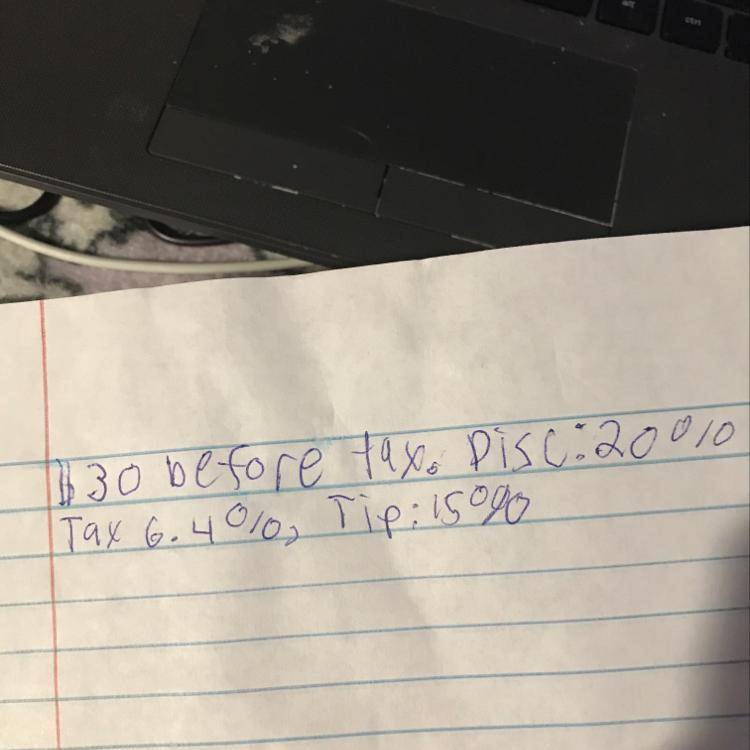 $30 before tax. Disc: 20%
Tax 6.4%, Tip: 15%
alt
ctrl